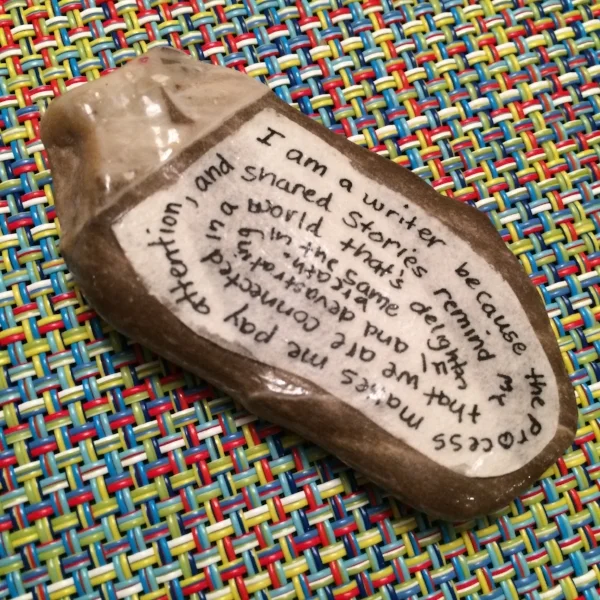 I am a writer because the process makes me pay attention, and shared stories remind me that we are connected in a world that's delightful and devastating in the same breath.